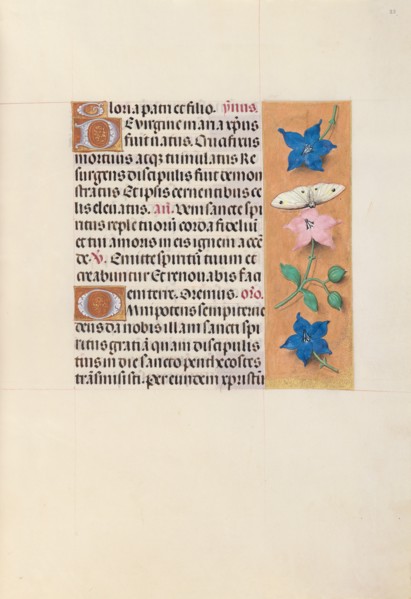 Gloria patri et filio. ym̄us.
De virgine maria xp̄us
fuit natus. Crucifixus
mortuus atqȝ tumulatus Re
surgens discipulis fuit demon
stratus Et ipsis cernentibus ce
lis eleuatus. an̄. Veni sancte spi
ritus reple tuorū corda fideliū
et tui amoris in eis ignem accē
de. v̄. Emitte spiritū tuum et
creabuntur Et renouabis faci
em terre. Oremus. oro.
Omnipotens sempiterne
deus da nobis illam sancti spi
ritus gratiā quam discipulis
tuis in die sancto penthecostes
trāsmisisti. Per eundem xpristū